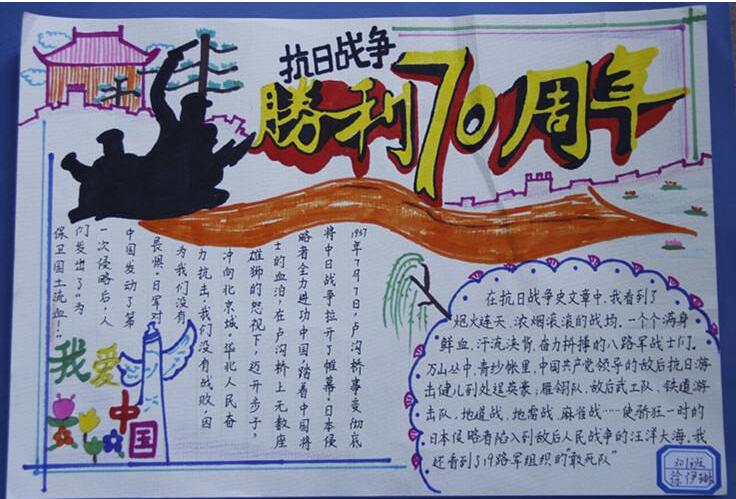 抗日战争
勝利70周年
1937年7月7日，卢沟桥事变彻底
将中日战争拉开了帷幕。日本侵
略者全力进功中国，踏着中国将
士的血泊，在卢沟桥上无数座
雄狮的怒视下，迈开步子，
冲向北京城。华北人民奋
力抗击，我们没有战败，因
为我们没有
畏惧。日军对
中国发动了第
一次侵略后，人
们发出了"为
保卫国土流血！"
我爱
中国
在抗日战争史文章中，我看到了
炮火连天、浓烟滚滚的战场，一个个满身
鲜血、汗流浃背、奋力拼搏的八路军战士们。
万山丛中，青纱帐里，中国共产党领导的敌后抗日游
击健儿到处逞英豪，雁翎队、敌后武工队、铁道游
击队、地道战、地雷战、麻雀战……使骄狂一时的
日本侵略者陷入到敌后人民战争的汪洋大海，我
还看到了19路军组织的"敢死队"
301班
徐伊琳